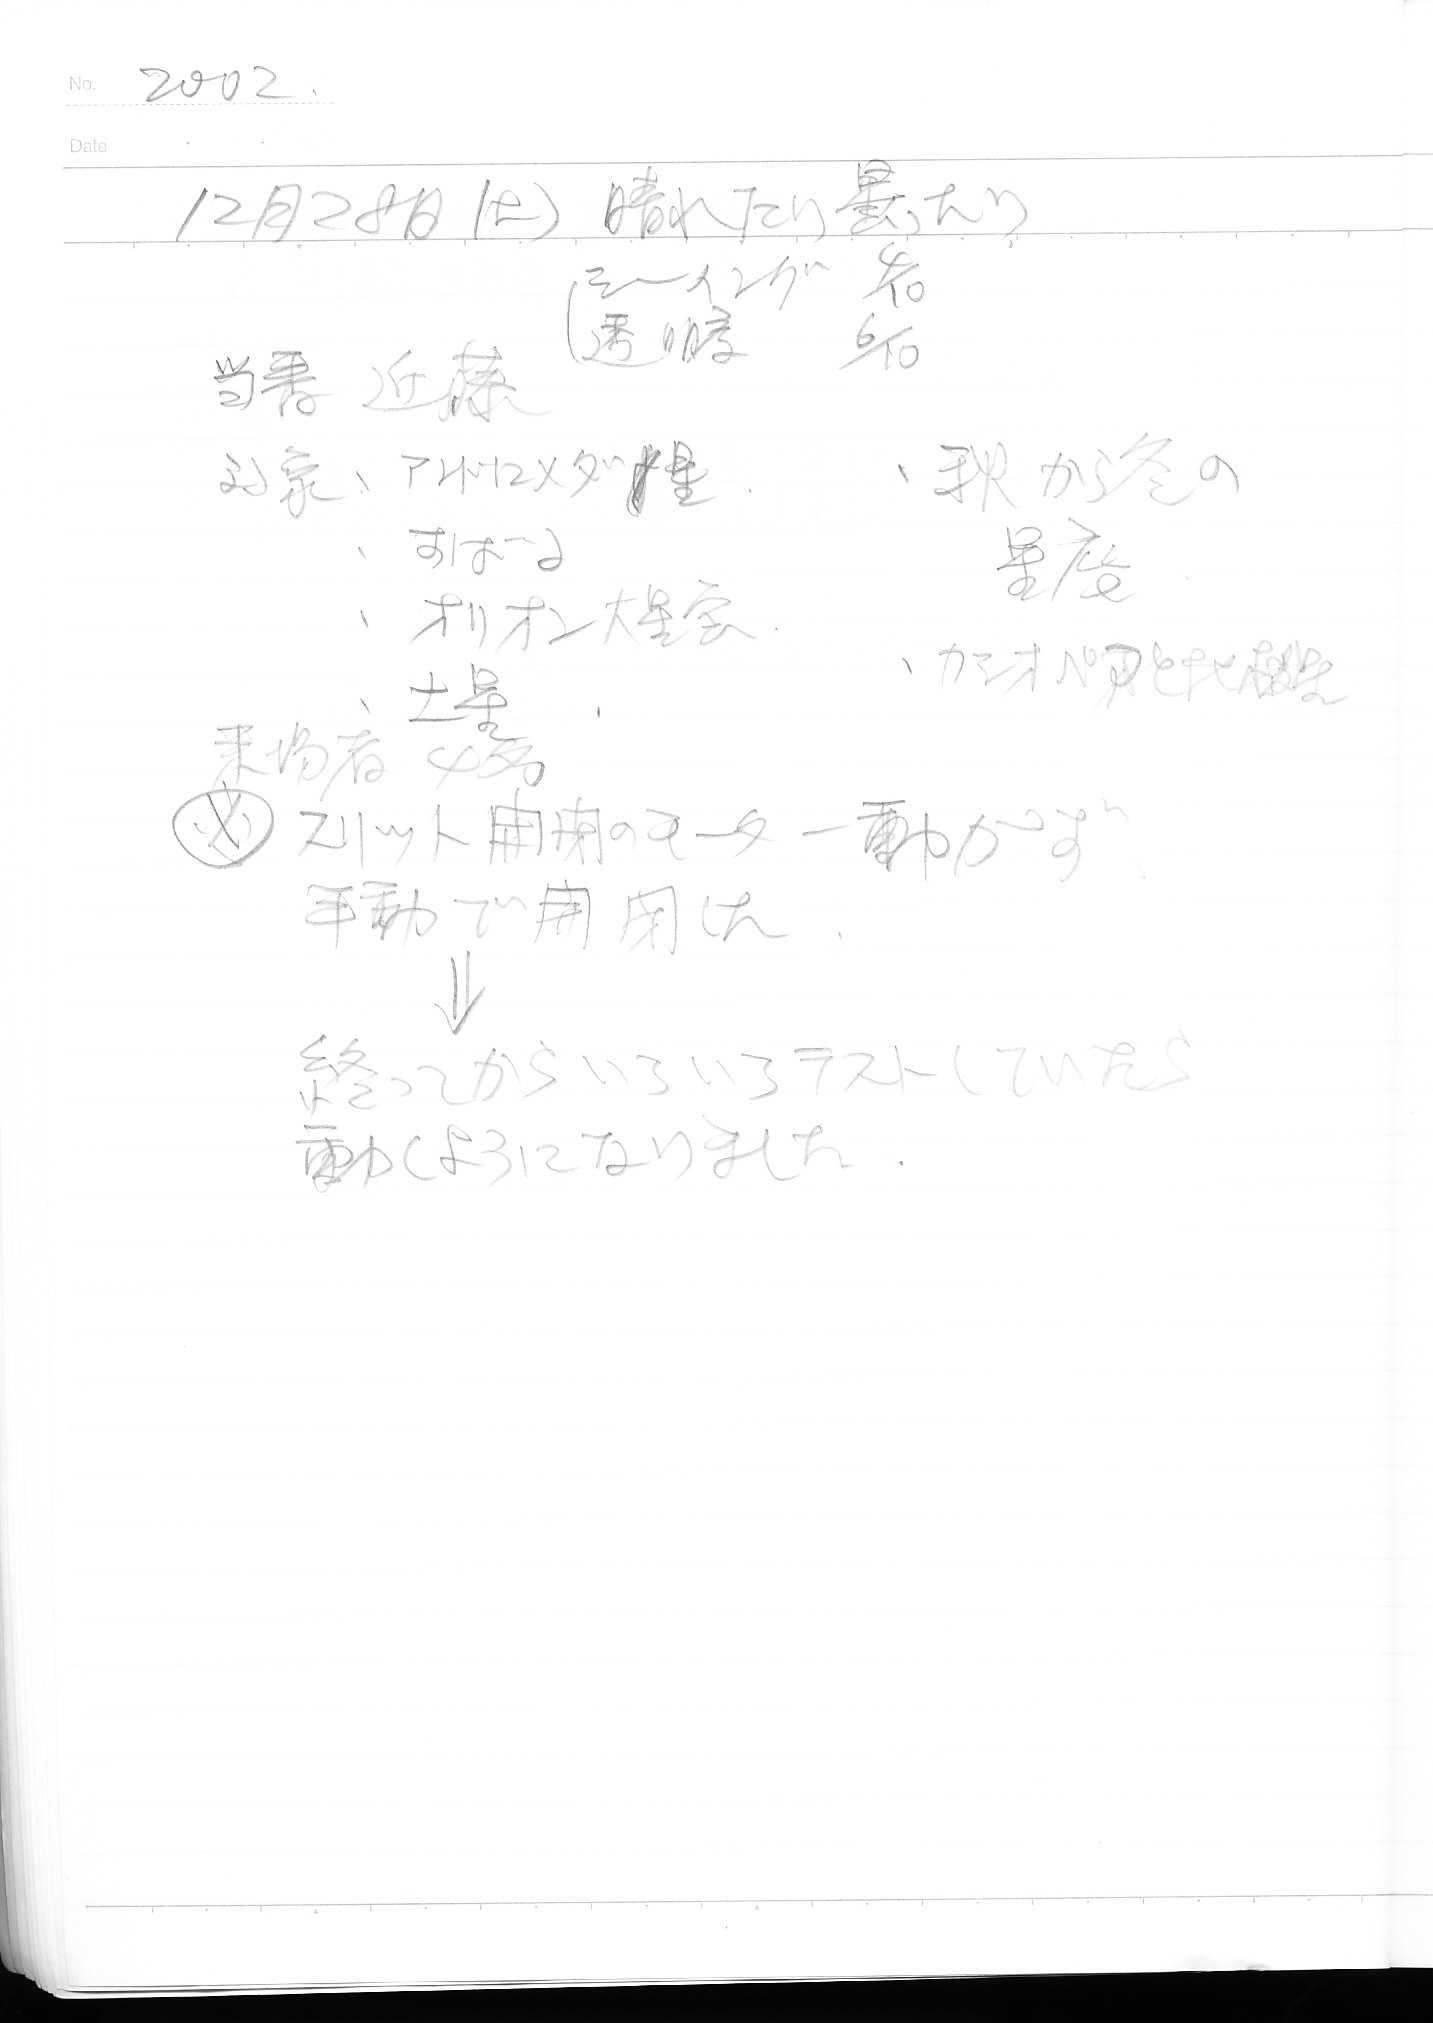 No. 2002.
Date
12月28日(土) 晴れたり曇ったり
シーイング 4/10
透明度 6/10
当番 近藤
対象、アンドロメダ 星
、すばる
、オリオン大星雲.
、土星.
、秋から冬の
星座
、カシオペアと北極星
来場者 4名
スリット開閉のモーター動かず
手動で開閉した.
⇓
終ってからいろいろテストしていたら
動くようになりました.